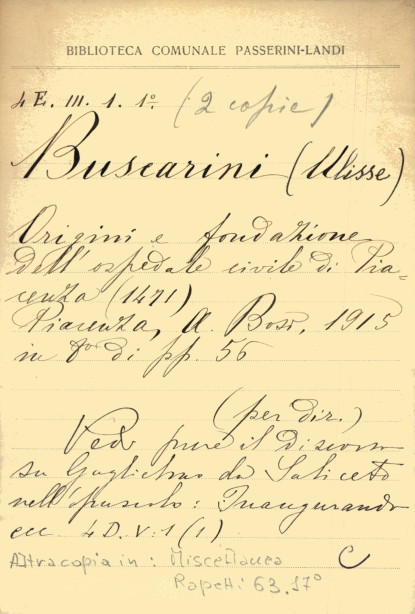 BIBLIOTECA COMUNALE PASSERINI-LANDI
4 E. III. 1. 1º (2 copie)
Buscarini (Ulisse)
Origini e fondazione
dell'ospedale civile di Pia=
cenza (1471)
Piacenza, A. Bosi, 1915
in 8º di pp. 56
(per dir.)
Vedi pure il discorso
su Guglielmo da Saliceto
nell'opuscolo: Inaugurando
ecc. 4 D. V. 1 (1)
Altra copia in: Miscellanea C
Rapetti 63.17º